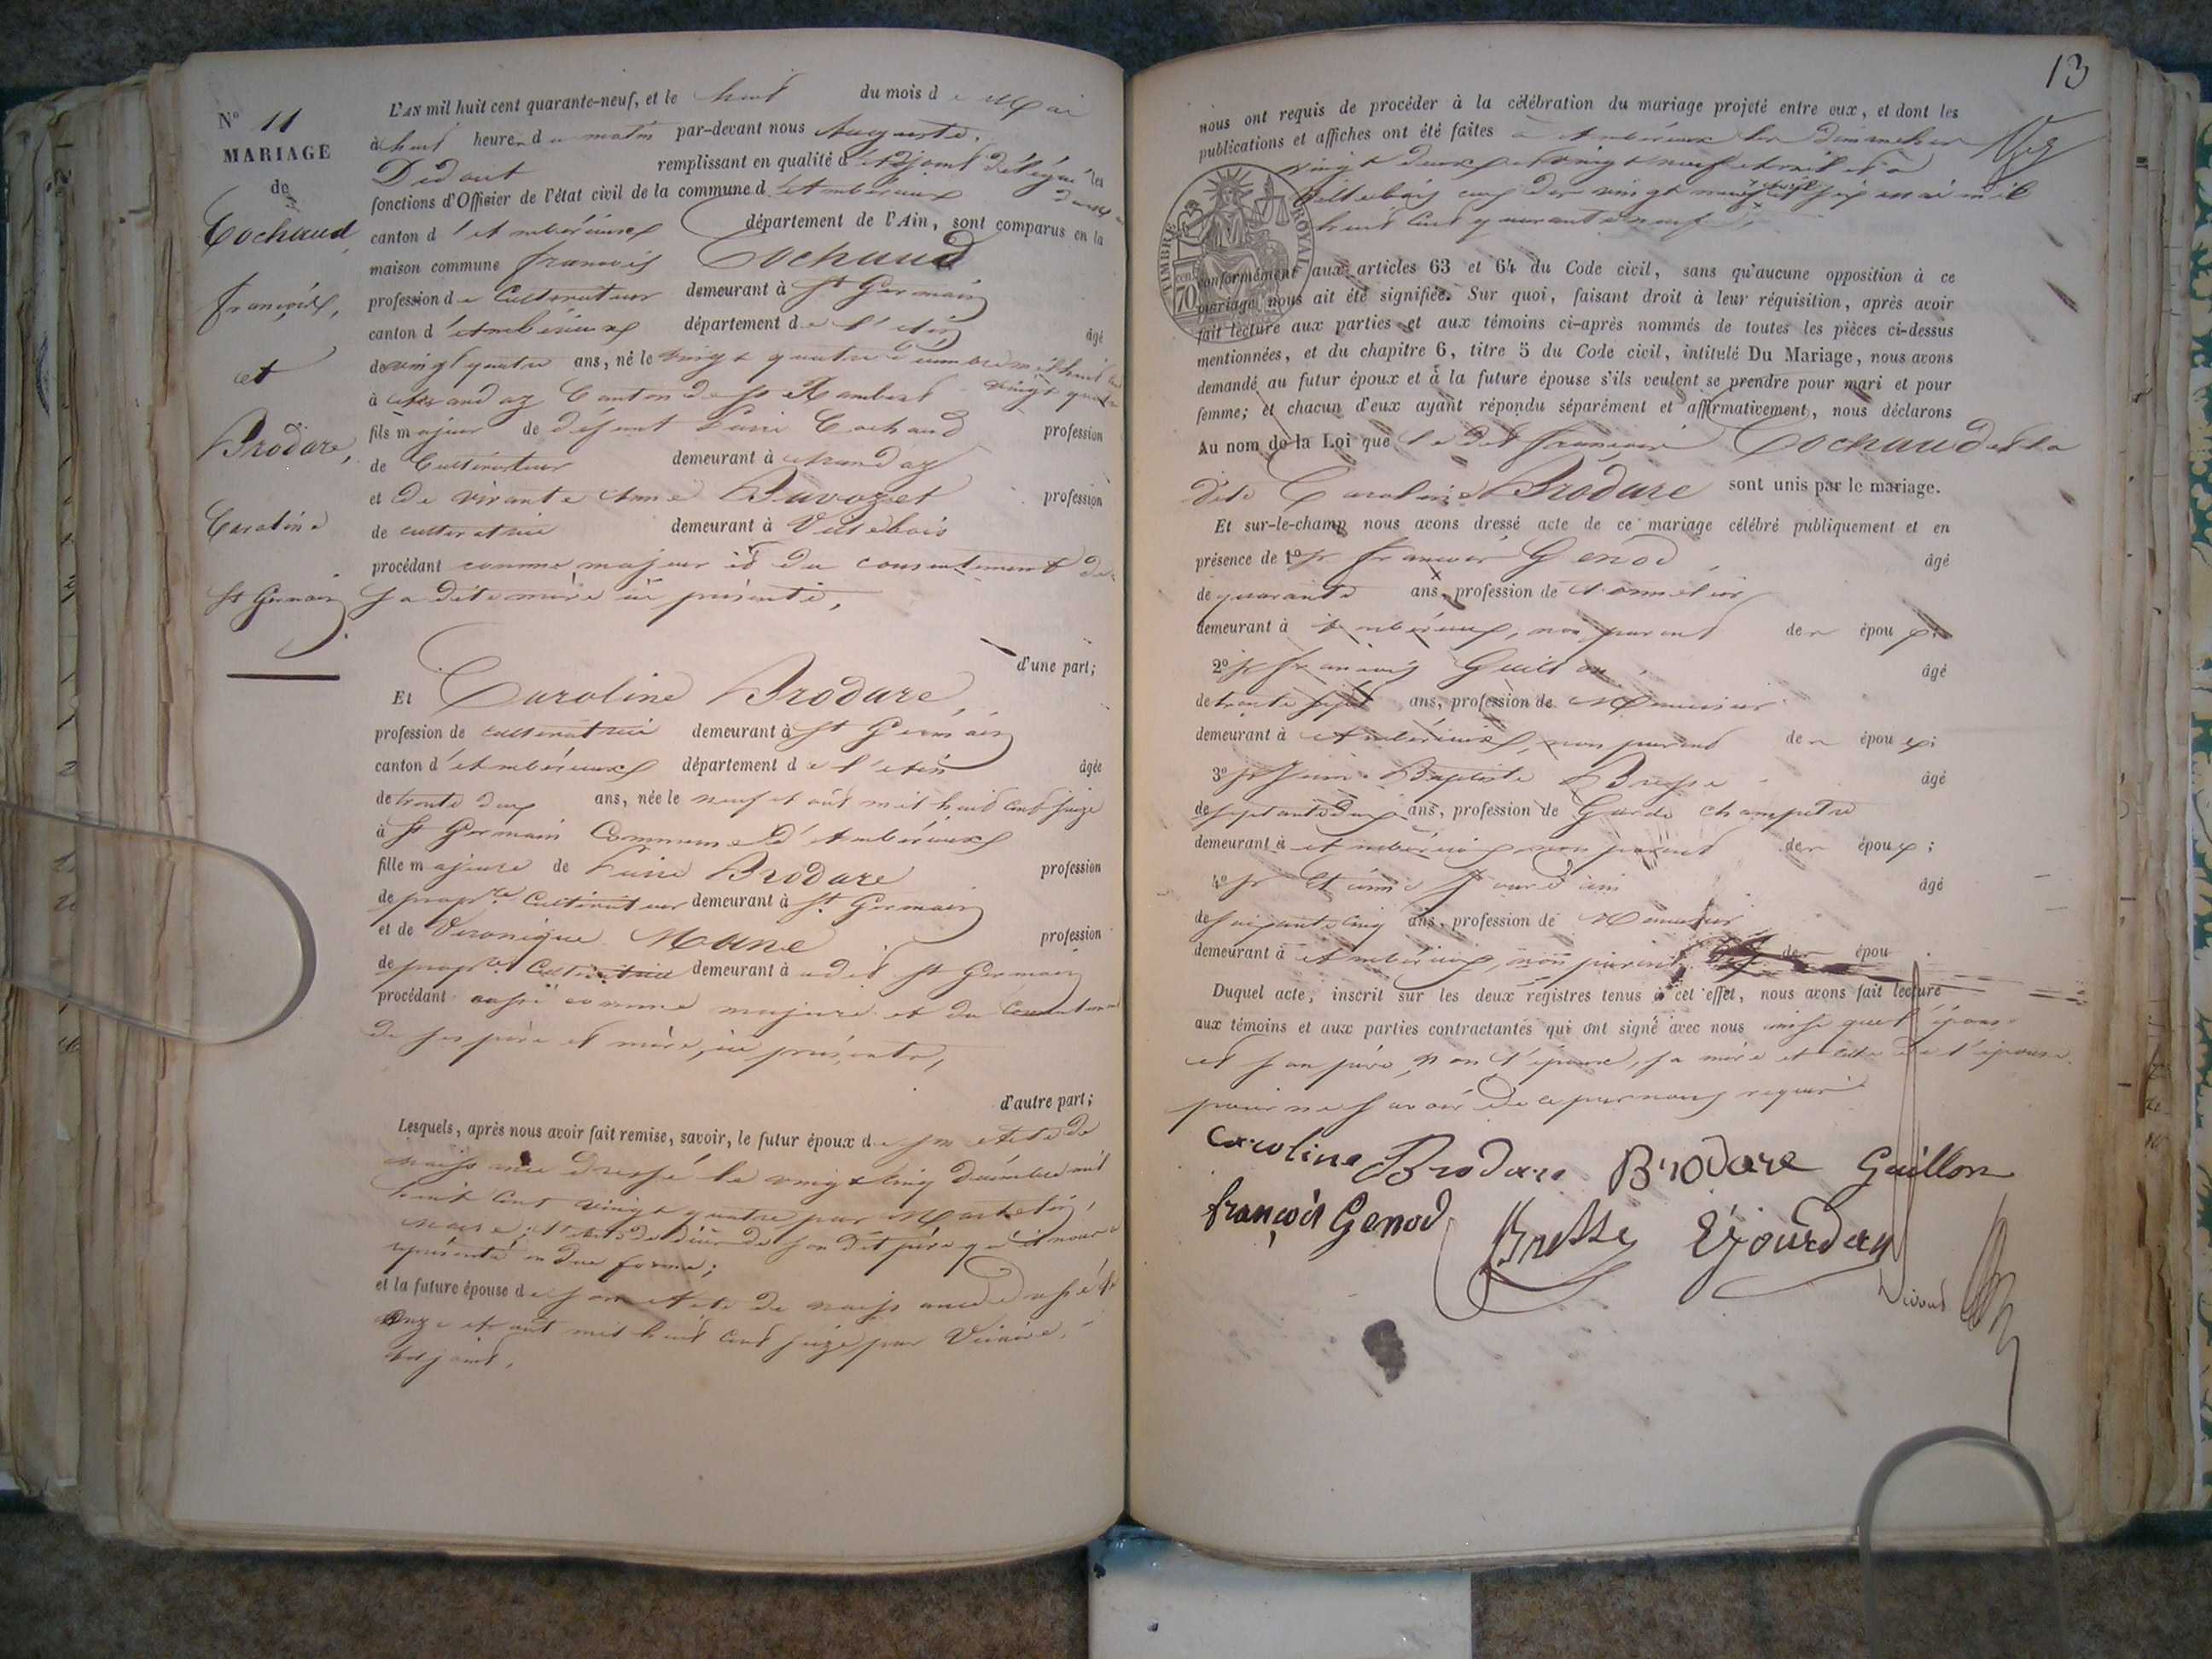 N° 11
MARIAGE
de
Cochaud
françois,
et
Brodare,
Caroline
St Germain
L'AN mil huit cent quarante-neuf, et le huit du mois de Mai
à huit heures du matin par-devant nous Auguste
Didout remplissant en qualité d'Adjoint délégué les
fonctions d'Officier de l'état civil de la commune d'Ambérieux
canton d'Ambérieux département de l'Ain, sont comparus en la
maison commune françois Cochaud
profession de Cultivateur demeurant à St Germain
canton d'Ambérieux département de l'Ain âgé
de vingt quatre ans, né le vingt quatre décembre mil huit cent
vingt quatre
à Arandaz Canton de St Rambert
fils majeur de défunt Cochaud profession
de Cultivateur demeurant à Arandaz
et de vivante Anne Buvozet profession
de cultivatrice demeurant à Villebois
procédant comme majeur et du consentement de
sa dite mère ici présente,
d'une part;
Et Caroline Brodare,
profession de cultivatrice demeurant à St Germain
canton d'Ambérieux département de l'Ain âgée
de trente deux ans, née le neuf Août mil huit cent seize
à St Germain Commune d'Ambérieux
fille majeure de Brodare profession
de propre Cultivateur demeurant à St Germain
et de Véronique Mane profession
de propre Cultivatrice demeurant à udit St Germain
procédant aussi comme majeure et du Consentement
de ses père et mère, ici présents,
d'autre part;
Lesquels, après nous avoir fait remise, savoir, le futur époux de son Acte de
naissance dressé le vingt cinq décembre mil
huit cent vingt quatre par Marthelin,
maire; l'acte de décès de son dit père qu'il nous a
représenté en due forme;
et la future épouse de son Acte de naissance dressé le
onze Août mil huit cent seize par
Adjoint.
13
nous ont requis de procéder à la célébration du mariage projeté entre eux, et dont les
publications et affiches ont été faites à Ambérieux les dimanches
vingt deux et vingt neuf Avril et à
Villebois ceux des vingt neuf Avril et six mai mil
huit cent quarante neuf,
TIMBRE ROYAL
70 cen
conformément aux articles 63 et 64 du Code civil, sans qu'aucune opposition à ce
mariage nous ait été signifiée. Sur quoi, faisant droit à leur réquisition, après avoir
fait lecture aux parties et aux témoins ci-après nommés de toutes les pièces ci-dessus
mentionnées, et du chapitre 6, titre 5 du Code civil, intitulé Du Mariage, nous avons
demandé au futur époux et à la future épouse s'ils veulent se prendre pour mari et pour
femme; et chacun d'eux ayant répondu séparément et affirmativement, nous déclarons
Au nom de la Loi que le dit françois Cochaud et la
dite Caroline Brodare sont unis par le mariage.
Et sur-le-champ nous avons dressé acte de ce mariage célébré publiquement et en
présence de 1° sr françois Genod, âgé
de quarante ans, profession de tonnelier
demeurant à Ambérieux, non parent des époux;
2° sr françois Guillon, âgé
de trente sept ans, profession de Menuisier
demeurant à Ambérieux, non parent des époux;
3° sr Jean Baptiste Bresse âgé
de septante deux ans, profession de Garde champetre
demeurant à Ambérieux non parent des époux;
4° sr Jourdain âgé
de soixante cinq ans, profession de Menuisier
demeurant à Ambérieux, non parent des épou
Duquel acte, inscrit sur les deux registres tenus à cet effet, nous avons fait lecture
aux témoins et aux parties contractantes qui ont signé avec nous ainsi que l'épouse
et son père, non l'époux, sa mère et celle de l'épouse
pour ne savoir de ce par nous requis
Caroline Brodare Brodare Guillon
françois Genod Bresse Ejourdan
Didout